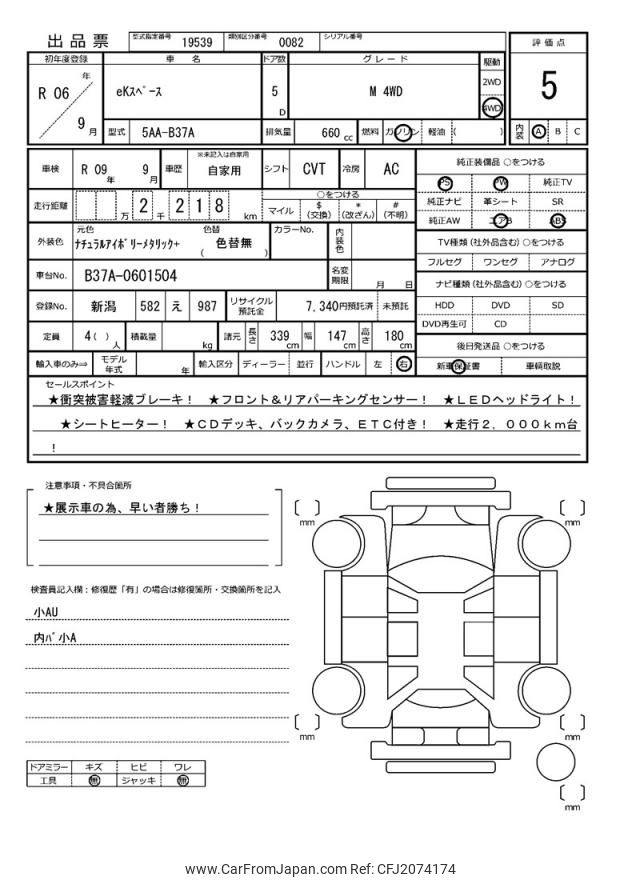 出品票
型式指定番号 19539 類別区分番号 0082 シリアル番号
初年度登録 車名 ドア数 グレード 駆動
R 06 年 9 月 eKｽﾍﾟｰｽ 5 D M 4WD 2WD 4WD
型式 5AA-B37A 排気量 660 cc 燃料 ガソリン 軽油 ( )
評価点
5
内装 A B C
車検 R 09 年 9 月 車歴 ※未記入は自家用 自家用 シフト CVT 冷房 AC
走行距離 万 2 千 2 1 8 km ○をつける マイル $ (交換) * (改ざん) # (不明)
外装色 元色 ﾅﾁｭﾗﾙｱｲﾎﾞﾘｰﾒﾀﾘｯｸ+ 色替 ( 色替無 ) カラーNo. 内装色
車台No. B37A-0601504 名変期限 月 日
登録No. 新潟 582 え 987 リサイクル預託金 7,340円預託済 未預託
定員 4( ) 人 積載量 kg 諸元 長さ 339 cm 幅 147 cm 高さ 180 cm
輸入車のみ⇒ モデル年式 年 輸入区分 ディーラー 並行 ハンドル 左 右
純正装備品 ○をつける
PS PW 純正TV
純正ナビ 革シート SR
純正AW エアB ABS
TV種類 (社外品含む) ○をつける
フルセグ ワンセグ アナログ
ナビ種類 (社外品含む) ○をつける
HDD DVD SD
DVD再生可 CD
後日発送品 ○をつける
新車保証書 車輌取説
セールスポイント
★衝突被害軽減ブレーキ！ ★フロント＆リアパーキングセンサー！ ★ＬＥＤヘッドライト！
★シートヒーター！ ★ＣＤデッキ、バックカメラ、ＥＴＣ付き！ ★走行２．０００ｋｍ台
！
注意事項・不具合箇所
★展示車の為、早い者勝ち！
検査員記入欄：修復歴「有」の場合は修復箇所・交換箇所を記入
小AU
内ﾊﾞ小A
ドアミラー キズ ヒビ ワレ
工具 無 ジャッキ 無
mm
mm
mm
mm
mm
www.CarFromJapan.com Ref: CFJ2074174